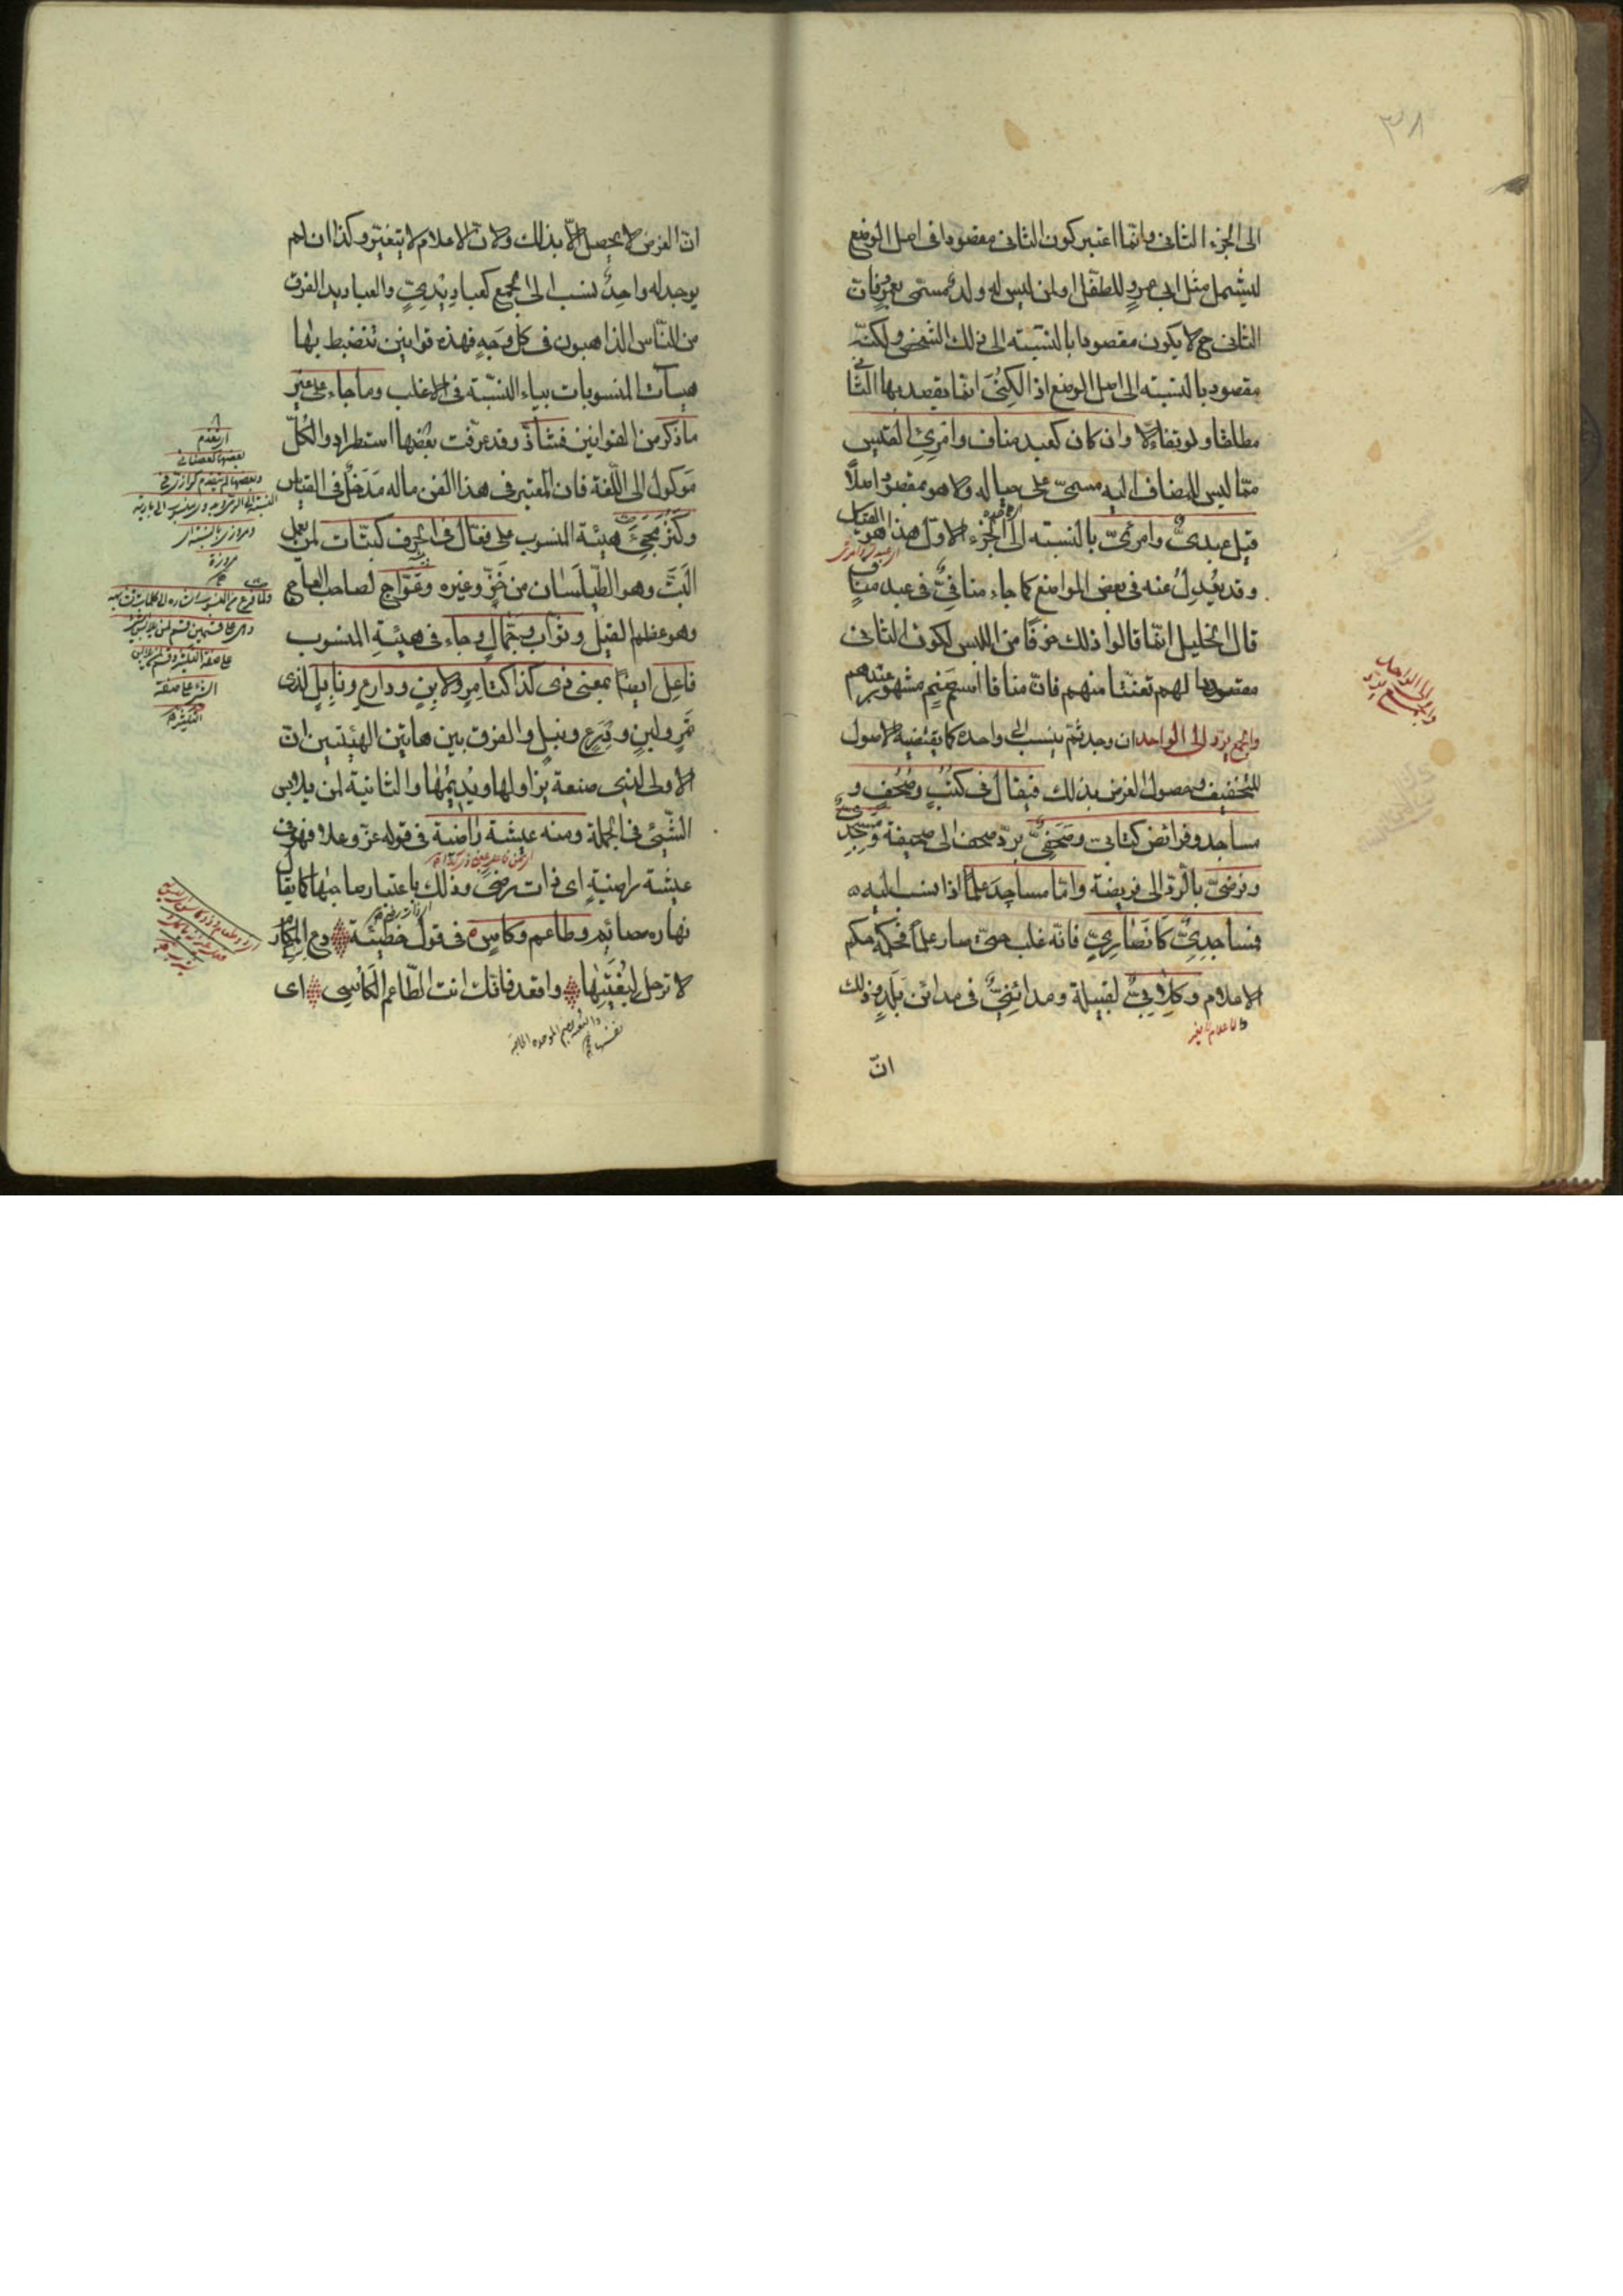 ٣٨
الى الجزء الثانى وانّما اعتبر كون الثانى مقصودا فى اصل الوضع
ليشمل مثل ابى عمرو للطفل او لمن ليس له ولد مسمى بعمرو فان
الثانى ح لا يكون مقصودا بالنسبة الى ذلك الشخص ولكنّه
مقصود بالنسبة الى اصل الوضع اذ الكنى انّما يقصد بها الثانى
مطلقا ولو تفاءلا وان كان كعبد مناف وامرئ القيس
ممّا ليس المضاف اليه مسمىّ على حياله ولا هو مقصود اصلاً
قيل عبدىّ وامرئىّ بالنسبة الى الجزء الاول هذا هو القياس
وقد يعدل عنه فى بعض المواضع كما جاء منافىّ فى عبد مناف
قال الخليل انّما قالوا ذلك خوفا من اللبس لكون الثانى
مقصودا لهم تعنّتا منهم فانّ منافا اسم صنم مشهور عندهم
والجمع يردّ الى الواحد ان وجد ثم ينسب الى واحده كما يقتضيه الاصول
للتخفيف وحصول الغرض بذلك فيقال فى كتب وصحف و
مساجد وفرائض كتابى وصحفىّ بردّ صحف الى صحيفة ومسجدىّ
وفرضىّ بالردّ الى فريضة وامّا مساجد علماً اذا نسب اليه
فمساجدىّ كانصارىّ فانّه غلب حتىّ صار علماً فحكمه حكم
الاعلام وكلابىّ لقبيلة ومدائنىّ فى مدائن بلد وذلك
والاعلام لا يغير
انّ
انّ الغرض لا يحصل الاّ بذلك ولانّ الاعلام لا يتغيّر وكذا ان لم
يوجد له واحد نسب الى الجمع كعباديدىّ والعباديد الفرق
من النّاس الذاهبون فى كل وجه فهذه قوانين تنضبط بها
هيآت المنسوبات بياء النسبّة فى الاغلب وما جاء على غير
ما ذكر من القوانين فشاذّ وقد عرّفت بعضها استطرادا والكلّ
موكول الى اللّغة فان المعتبر فى هذا الفن ماله مدخل فى القياس
وكثر مجئ هيئة المنسوب على فعّال فى الحرف كبتّات لمن يعمل
البتّ وهو الطيلسان من خزّ وغيره وعوّاج لصاحب العاج
وهو عظم الفيل وثوّاب وجمّال وجاء فى هيئة المنسوب
فاعل ايضا بمعنى ذى كذا كتامر ولابن ودارع ونابل لذى
تمر ولبن ودرع ونبل والفرق بين هاتين الهيئتين انّ
الاولى لذى صنعة يزاولها ويديمها والثانية لمن يلابس
الشّئ فى الجملة ومنه عيشة راضية فى قوله عزّ وعلا فهو فى
عيشة راضية اى ذات رضىً وذلك باعتبار صاحبها كما يقال
نهاره صائم وطاعم وكاس فى قول حطيئة دع المكارم
لا ترحل لبغيتها واقعد فانّك انت الطّاعم الكاسى اى